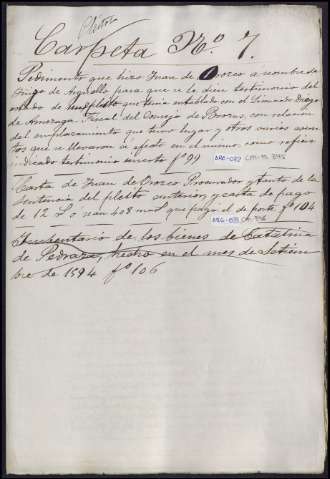 Pleitos
Carpeta N.º 7.
Pedimento que hizo Juan de Orozco á nombre de
Iñigo de Arguello para que se le diese testimonio del
estado de un pleito que tenia entablado con el Licenciado Diego
de Amezaga Fiscal del Consejo de Ordenes, con relacion
del emplazamiento que tuvo lugar y otros varios asun-
tos que se llevaron á efecto en el mismo como refiere
indicado testimonio inserto fº 99
Carta de Juan de Orozco Procurador tanto de la
sentencia del pleito anterior, y carta de pago
de 12 408 mrs que pagó el de porte fº 104
Inventario de los bienes de Catalina
de Pedraza, hecho en el mes de Setiem-
bre de 1594 fº 106